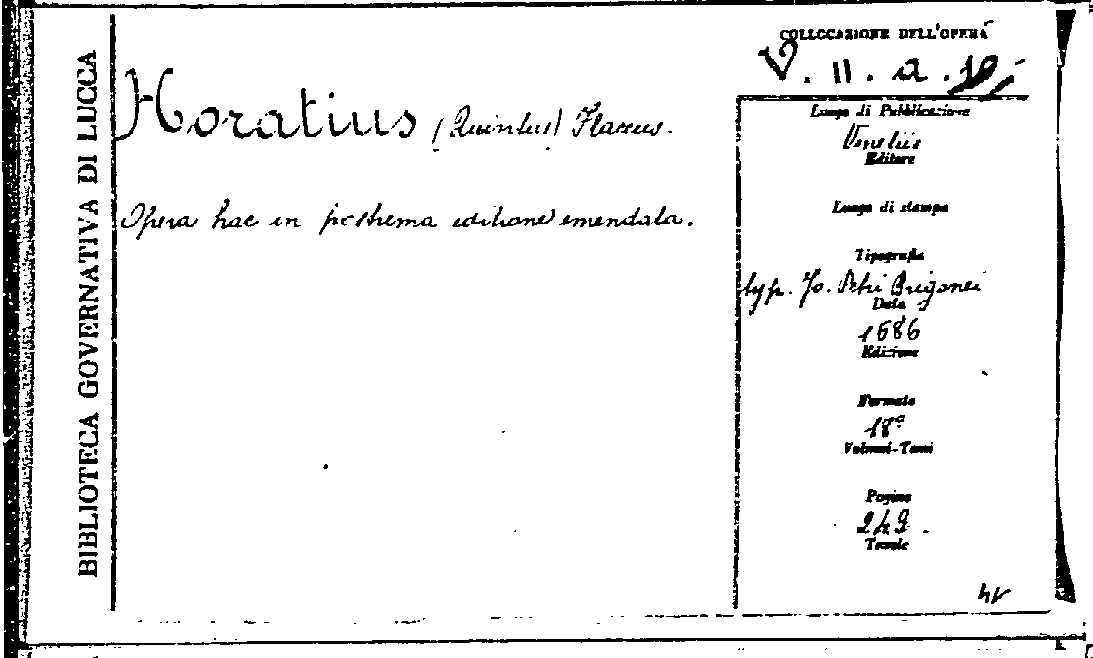 BIBLIOTECA GOVERNATIVA DI LUCCA
COLLOCAZIONE DELL'OPERA
V. II. a.
Horatius (Quintus) Flaccus.
Opera hac in postrema editione emendata.
Luogo di Pubblicazione
Venetiis
Editore
Luogo di stampa
Tipografia
typ. Jo. Petri Brigonci
Data
1686
Edizione
Formato
18º
Volumi-Tomi
Pagine
242.
Tavole